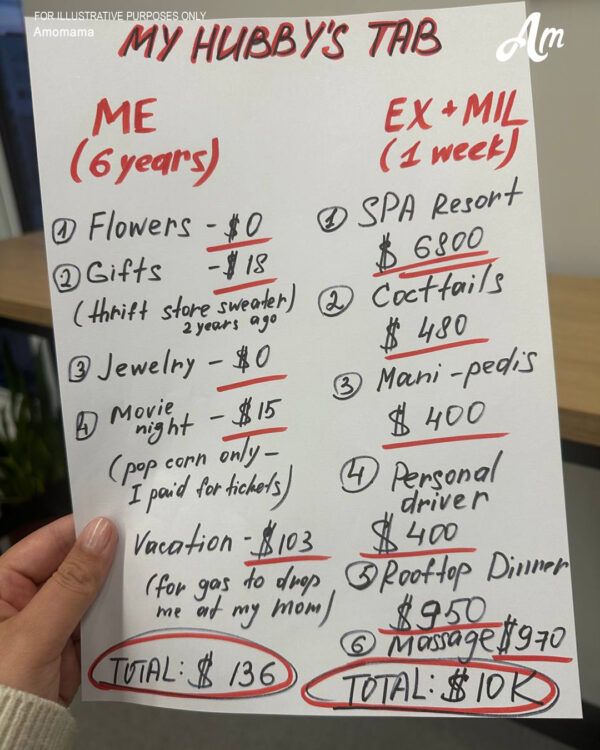 FOR ILLUSTRATIVE PURPOSES ONLY
Amomama
Am
MY HUBBY'S TAB
ME
(6 years)
① Flowers - $0
② Gifts - $18
(thrift store sweater)
2 years ago
③ Jewelry - $0
④ Movie
night - $15
(pop corn only -
I paid for tickets)
Vacation - $103
(for gas to drop
me at my mom)
TOTAL: $ 136
EX + MIL
(1 week)
① SPA Resort
$ 6800
② Cocttails
$ 480
③ Mani-pedis
$ 400
④ Personal
driver
$ 400
⑤ Rooftop Dinner
$950
⑥ Massage $970
TOTAL: $10K